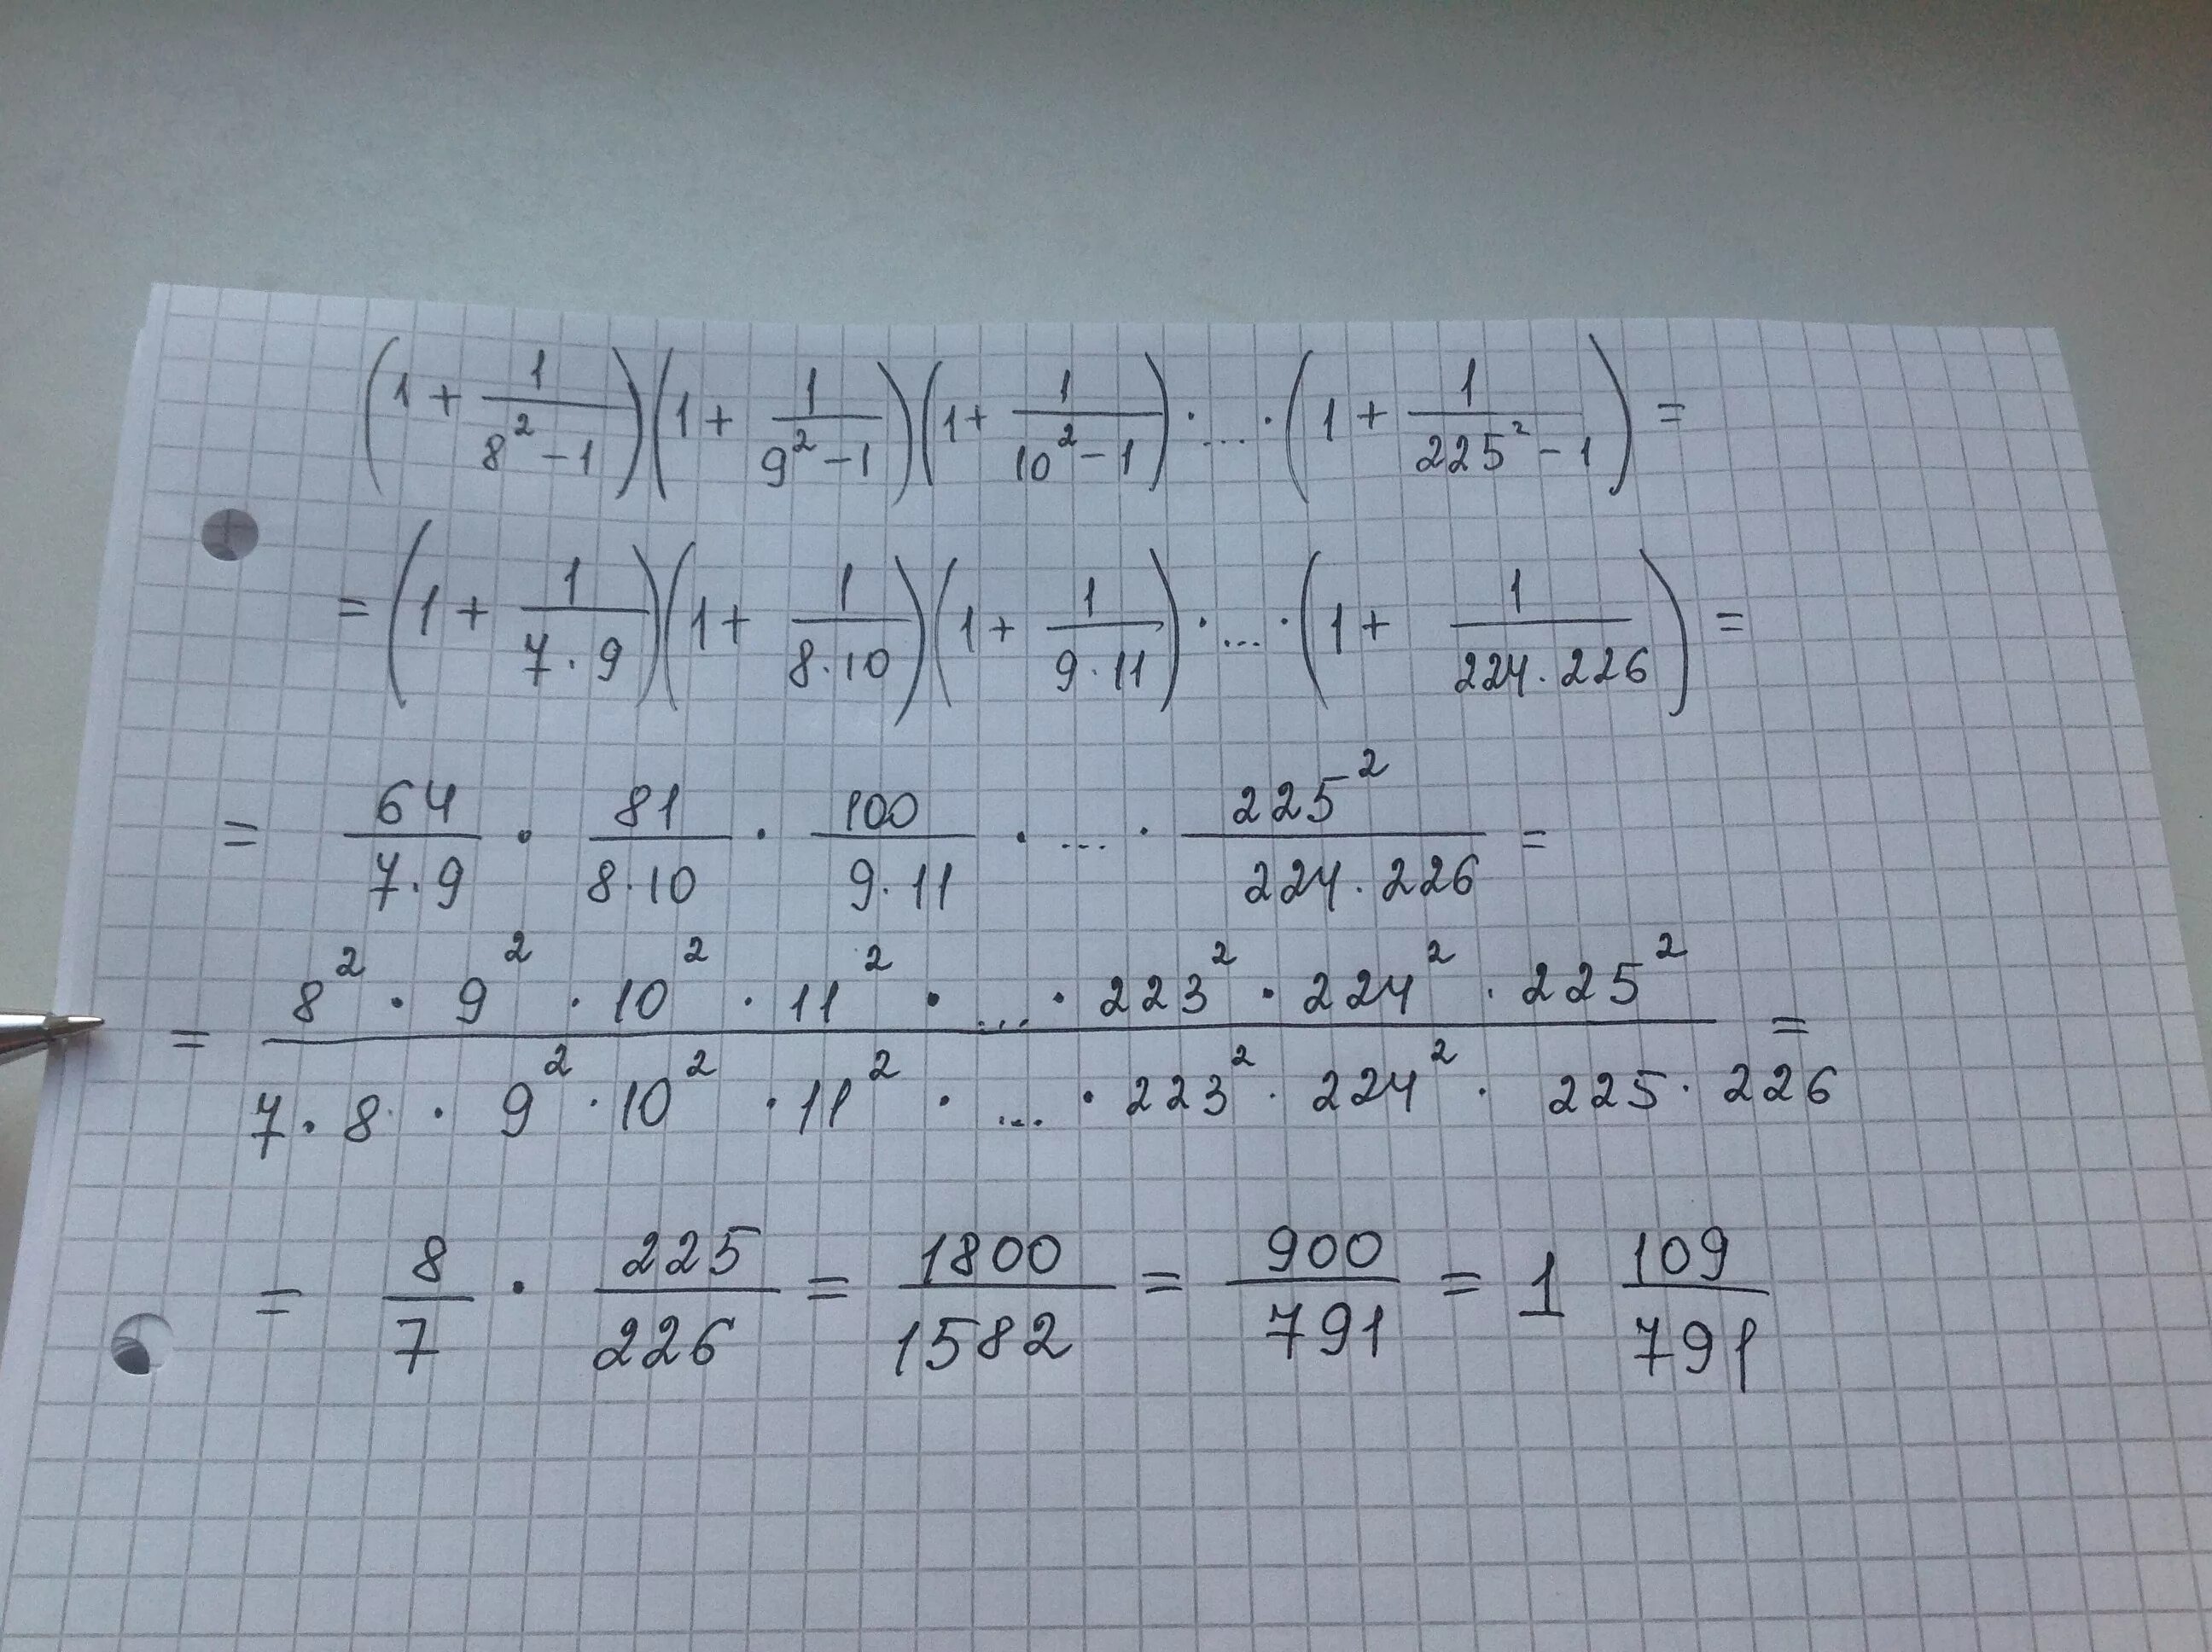 (1 + 1/(8² − 1))(1 + 1/(9² − 1))(1 + 1/(10² − 1)) · ... · (1 + 1/(225² − 1)) =
= (1 + 1/(7 · 9))(1 + 1/(8 · 10))(1 + 1/(9 · 11)) · ... · (1 + 1/(224 · 226)) =
= 64/(7 · 9) · 81/(8 · 10) · 100/(9 · 11) · ... · 225²/(224 · 226) =
= (8² · 9² · 10² · 11² · ... · 223² · 224² · 225²)/(7 · 8 · 9² · 10² · 11² · ... · 223² · 224² · 225 · 226) =
= 8/7 · 225/226 = 1800/1582 = 900/791 = 1 109/791